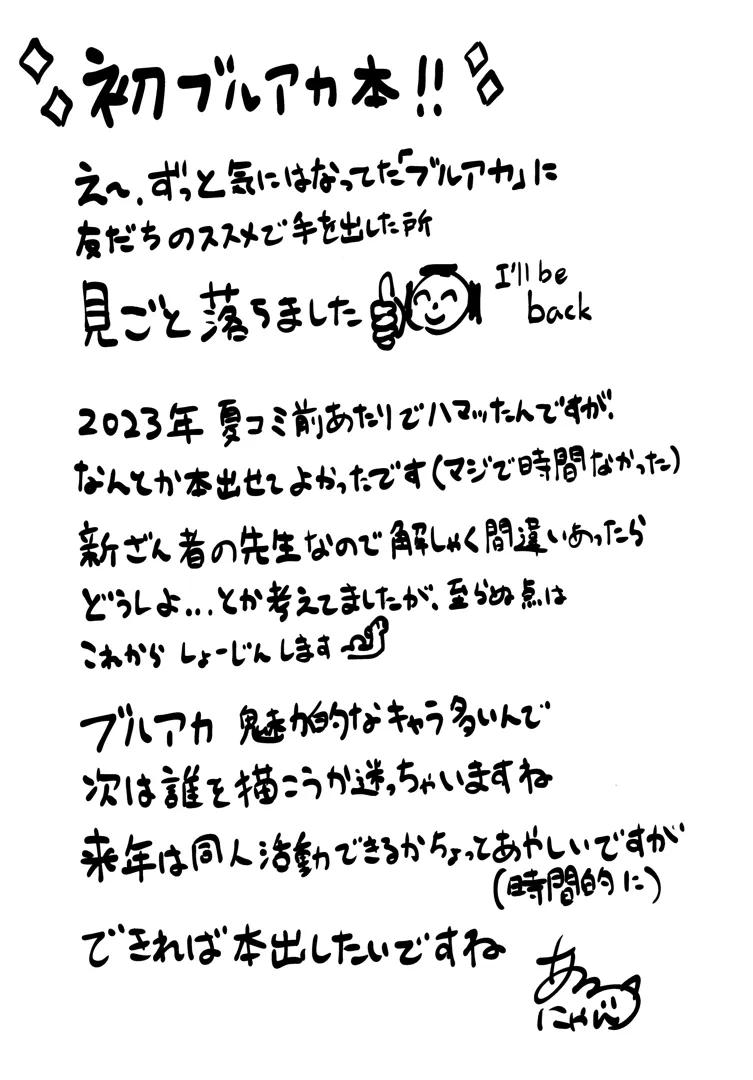 初ブルアカ本!!
え~、ずっと気にはなってた「ブルアカ」に
友だちのススメで手を出した所
見ごと落ちました
I'll be
back
2023年 夏コミ前あたりでハマッたんですが、
なんとか本出せてよかったです(マジで時間なかった)
新ざん者の先生なので解しゃく間違いあったら
どうしよ...とか考えてましたが、至らぬ点は
これから しょーじんします
ブルアカ 魅力的なキャラ多いんで
次は誰を描こうか迷っちゃいますね
来年は同人活動できるかちょっとあやしいですが
(時間的に)
できれば本出したいですね
にゃん